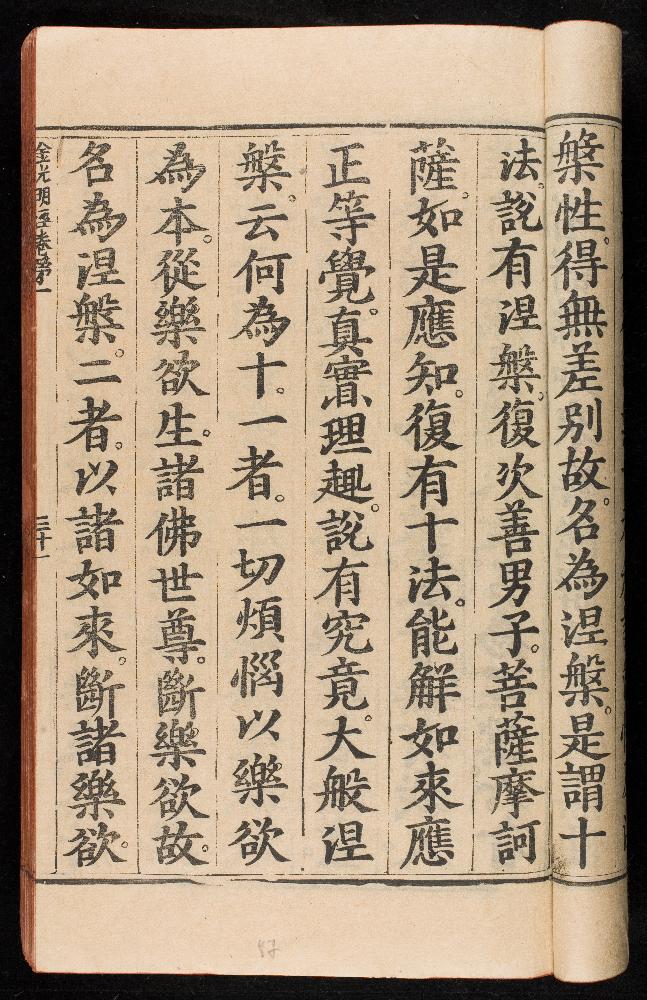 槃性。得無差別故。名為涅槃。是謂十
法。說有涅槃。復次善男子。菩薩摩訶
薩。如是應知。復有十法。能解如來應
正等覺。真實理趣。說有究竟。大般涅
槃。云何為十。一者。一切煩惱以樂欲
為本。從樂欲生。諸佛世尊。斷樂欲故。
名為涅槃。二者。以諸如來。斷諸樂欲。
金光明經卷第一
三十一
57